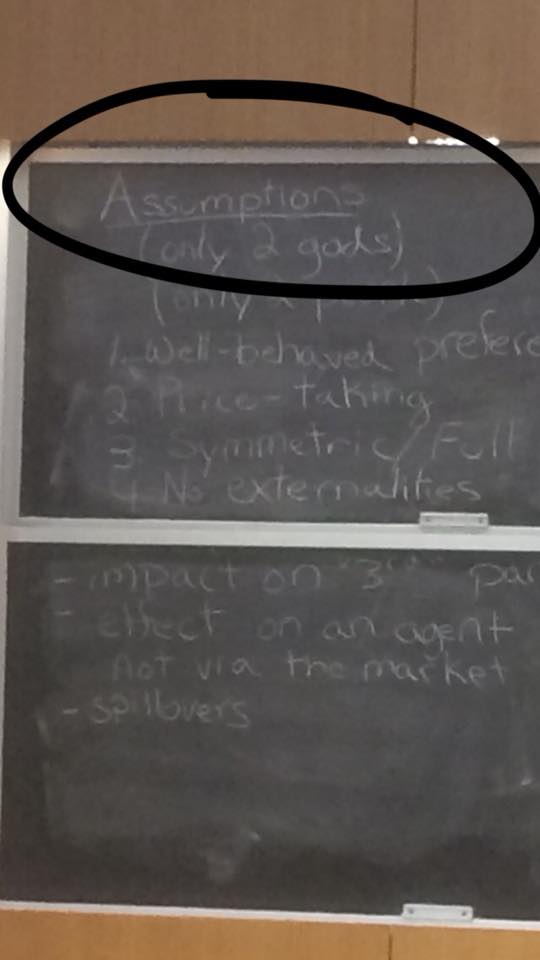 Assumptions
(only 2 gods)
(only 2
1. Well-behaved prefere
2 Price-taking
3 Symmetric/Full
4 No externalities
- impact on "3rd" par
- effect on an agent
not via the market
- spillovers